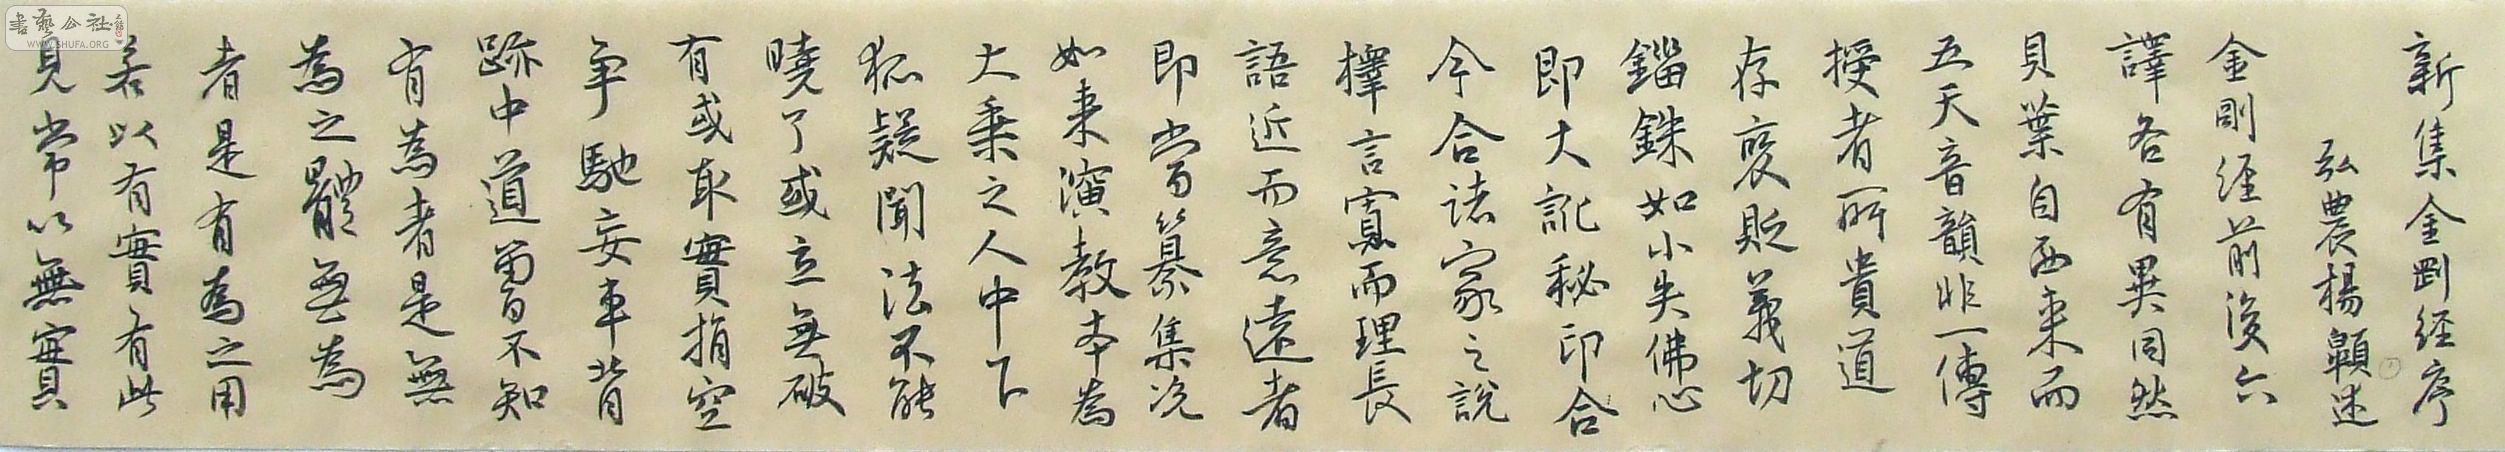 新集金剛經序
弘農楊顗述
金剛經前後六
譯各有異同然
貝葉自西來而
五天音韻非一傳
授者所貴道
存褒貶義切
錙銖如小失佛心
即大訛秘印合
今合諸家之說
擇言寡而理長
語近而意遠者
即當纂集況
如來演教本為
大乘之人中下
狐疑聞法不能
曉了或立無破
有或取實捐空
爭馳妄車背
跡中道曾不知
有為者是無
為之體無為
者是有為之用
若以有實有此
見常以無實
書藝公社
WWW.SHUFA.ORG